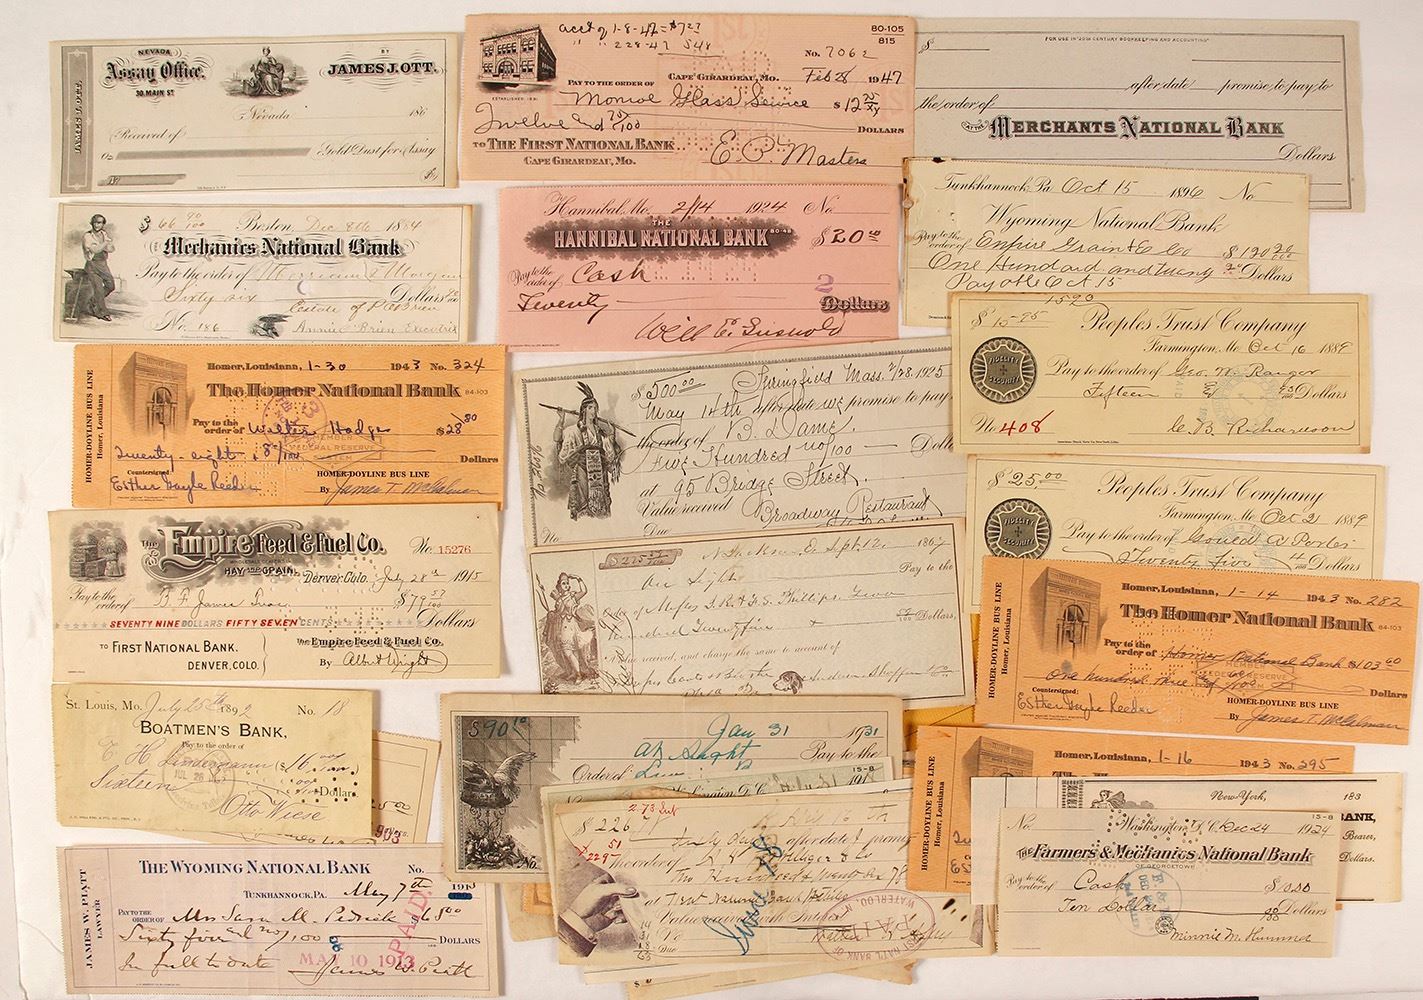 NEVADA
Assay Office.
30. MAIN ST.
BY
JAMES J. OTT.
JAMES J. OTT.
Nevada 186
Received of
Oz Gold Dust for Assay
No $
acct of 1-8-47 = $7.27
" " 2-28-47 5.48
80-105
815
No. 7062
CAPE GIRARDEAU, MO. Feb 28 1947
PAY TO THE ORDER OF
ESTABLISHED 1891
Monroe Glass Service $12 75/xx
Twelve and 75/100 DOLLARS
TO THE FIRST NATIONAL BANK
CAPE GIRARDEAU, MO.
E. P. Masters
FOR USE IN "20TH CENTURY BOOKKEEPING AND ACCOUNTING"
$
after date promise to pay to
the order of
AT THE MERCHANTS NATIONAL BANK
Dollars
$ 66 90/100 Boston, Dec 8th 1884
THE Mechanics National Bank
Pay to the order of
Sixty six Dollars
Estate of
No. 186
Annie O'Brien Executrix
Hannibal, Mo. 2/14 1924 No.
THE
HANNIBAL NATIONAL BANK 80-48
$20.00
Pay to the order of Cash
Twenty Dollars
2
Will E. Griswold
Tunkhannock, Pa Oct 15 1896 No
Wyoming National Bank
Pay to the order of Empire Grain & E Co $120 20/100
One Hundred and twenty Dollars
Payable Oct 15
1520
$15.95 Peoples Trust Company
Farmington, Me Oct 16 1889
FIDELITY
SECURITY
Pay to the order of Geo. W. Ranger
Fifteen & 95/100 Dollars
No. 408 C. B. Richardson
Homer, Louisiana, 1-30 1943 No. 324
The Homer National Bank 84-103
HOMER-DOYLINE BUS LINE
Homer, Louisiana
Pay to the order of Walter Hodge $28.80
MEMBER
FEDERAL RESERVE
SYSTEM
Twenty-eight & 80/100 Dollars
Countersigned:
Esther Gayle Reeder
HOMER-DOYLINE BUS LINE
By James T. McCalman
$500.00 Springfield Mass. 2/28 1925
May 14th after date we promise to pay
the order of B. Dame
Five Hundred no/100 Doll
at 95 Bridge Street
Value received Broadway Restaurant
No. Due
$25.00 Peoples Trust Company
Farmington, Me Oct 21 1889
FIDELITY
SECURITY
Pay to the order of Gould A Porter
Twenty Five Dollars
The Empire Feed & Fuel Co. No. 15276
HAY AND GRAIN
Denver, Colo. July 28th 1915
Pay to the order of $79 57/100
SEVENTY NINE DOLLARS FIFTY SEVEN CENTS Dollars
TO FIRST NATIONAL BANK.
DENVER, COLO.
The Empire Feed & Fuel Co.
By Albert Wright
$225 Sept 12, 186
At Sight Pay to the
Order of
Hundred Twenty five Dollars,
Value received, and charge the same to account of
Homer, Louisiana, 1-14 1943 No. 282
The Homer National Bank 84-103
HOMER-DOYLINE BUS LINE
Homer, Louisiana
Pay to the order of Homer National Bank $103.60
MEMBER
FEDERAL RESERVE
SYSTEM
One hundred three and 60/100 Dollars
Countersigned:
Esther Gayle Reeder
HOMER-DOYLINE BUS LINE
By James T. McCalman
St. Louis, Mo. July 25th 1892 No. 18
BOATMEN'S BANK,
Pay to the order of
Lindemann ($16
JUL 26
Sixteen Dollars.
Otto Wiese
903
$90.10 Jan 31 1931
At Sight Pay to the
Order of
No.
15-8
Washington, D.C. 191
$226
2.73 Int
51
229
days after date I promise
the order of
Two Hundred and Twenty Six 78
at First National Bank
Value received with Interest
No
Due
14
31
18
63
FIRST NAT'L BANK OF
WATERLOO,
PAID
Homer, Louisiana, 1-16 1943 No. 295
HOMER-DOYLINE BUS LINE
Homer, Louisiana
New-York, 183
BANK,
Bearer,
Dollars.
15-8
No. Washington, D.C. Dec 24 1924
THE Farmers & Mechanics National Bank
OF GEORGETOWN
Pay to the order of Cash $10.00
Ten Dollars Dollars
Minnie M.
THE WYOMING NATIONAL BANK No.
JAMES W. PIATT
LAWYER
TUNKHANNOCK, PA. May 7th 1913
PAY TO THE ORDER OF Mrs Sara M. $65.00
Sixty five and no/100 DOLLARS
PAID
MAY 10 1913
In full to date James W. Piatt